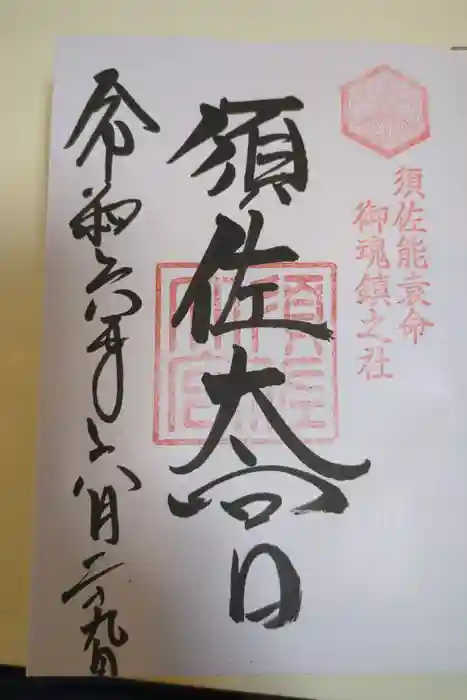 須佐能袁命
御魂鎮之社
須佐大宮
令和六年六月二十九日